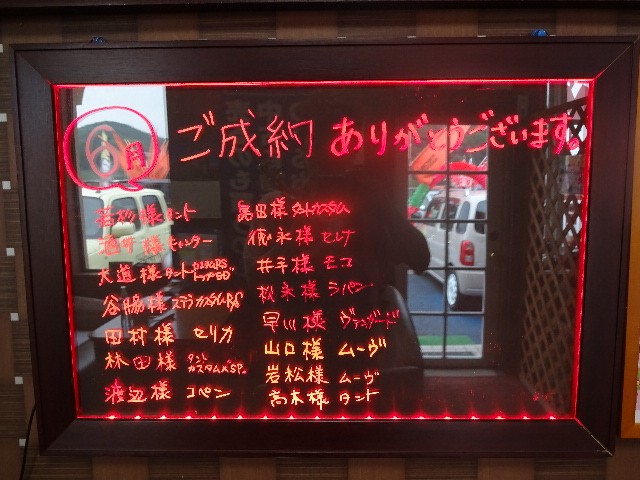 月 ご成約 ありがとうございます。
若杉様 タント
酒井様 キャンター
大道様 タントカスタムRS
谷脇様 ステラカスタムRS
田村様 セリカ
林田様 タントカスタムXSP.
渡辺様 コペン
島田様 タントカスタム
徳永様 セレナ
井手様 モコ
松永様 シボレー
早川様 ヴァンガード
山口様 ムーヴ
岩松様 ムーヴ
高木様 タント